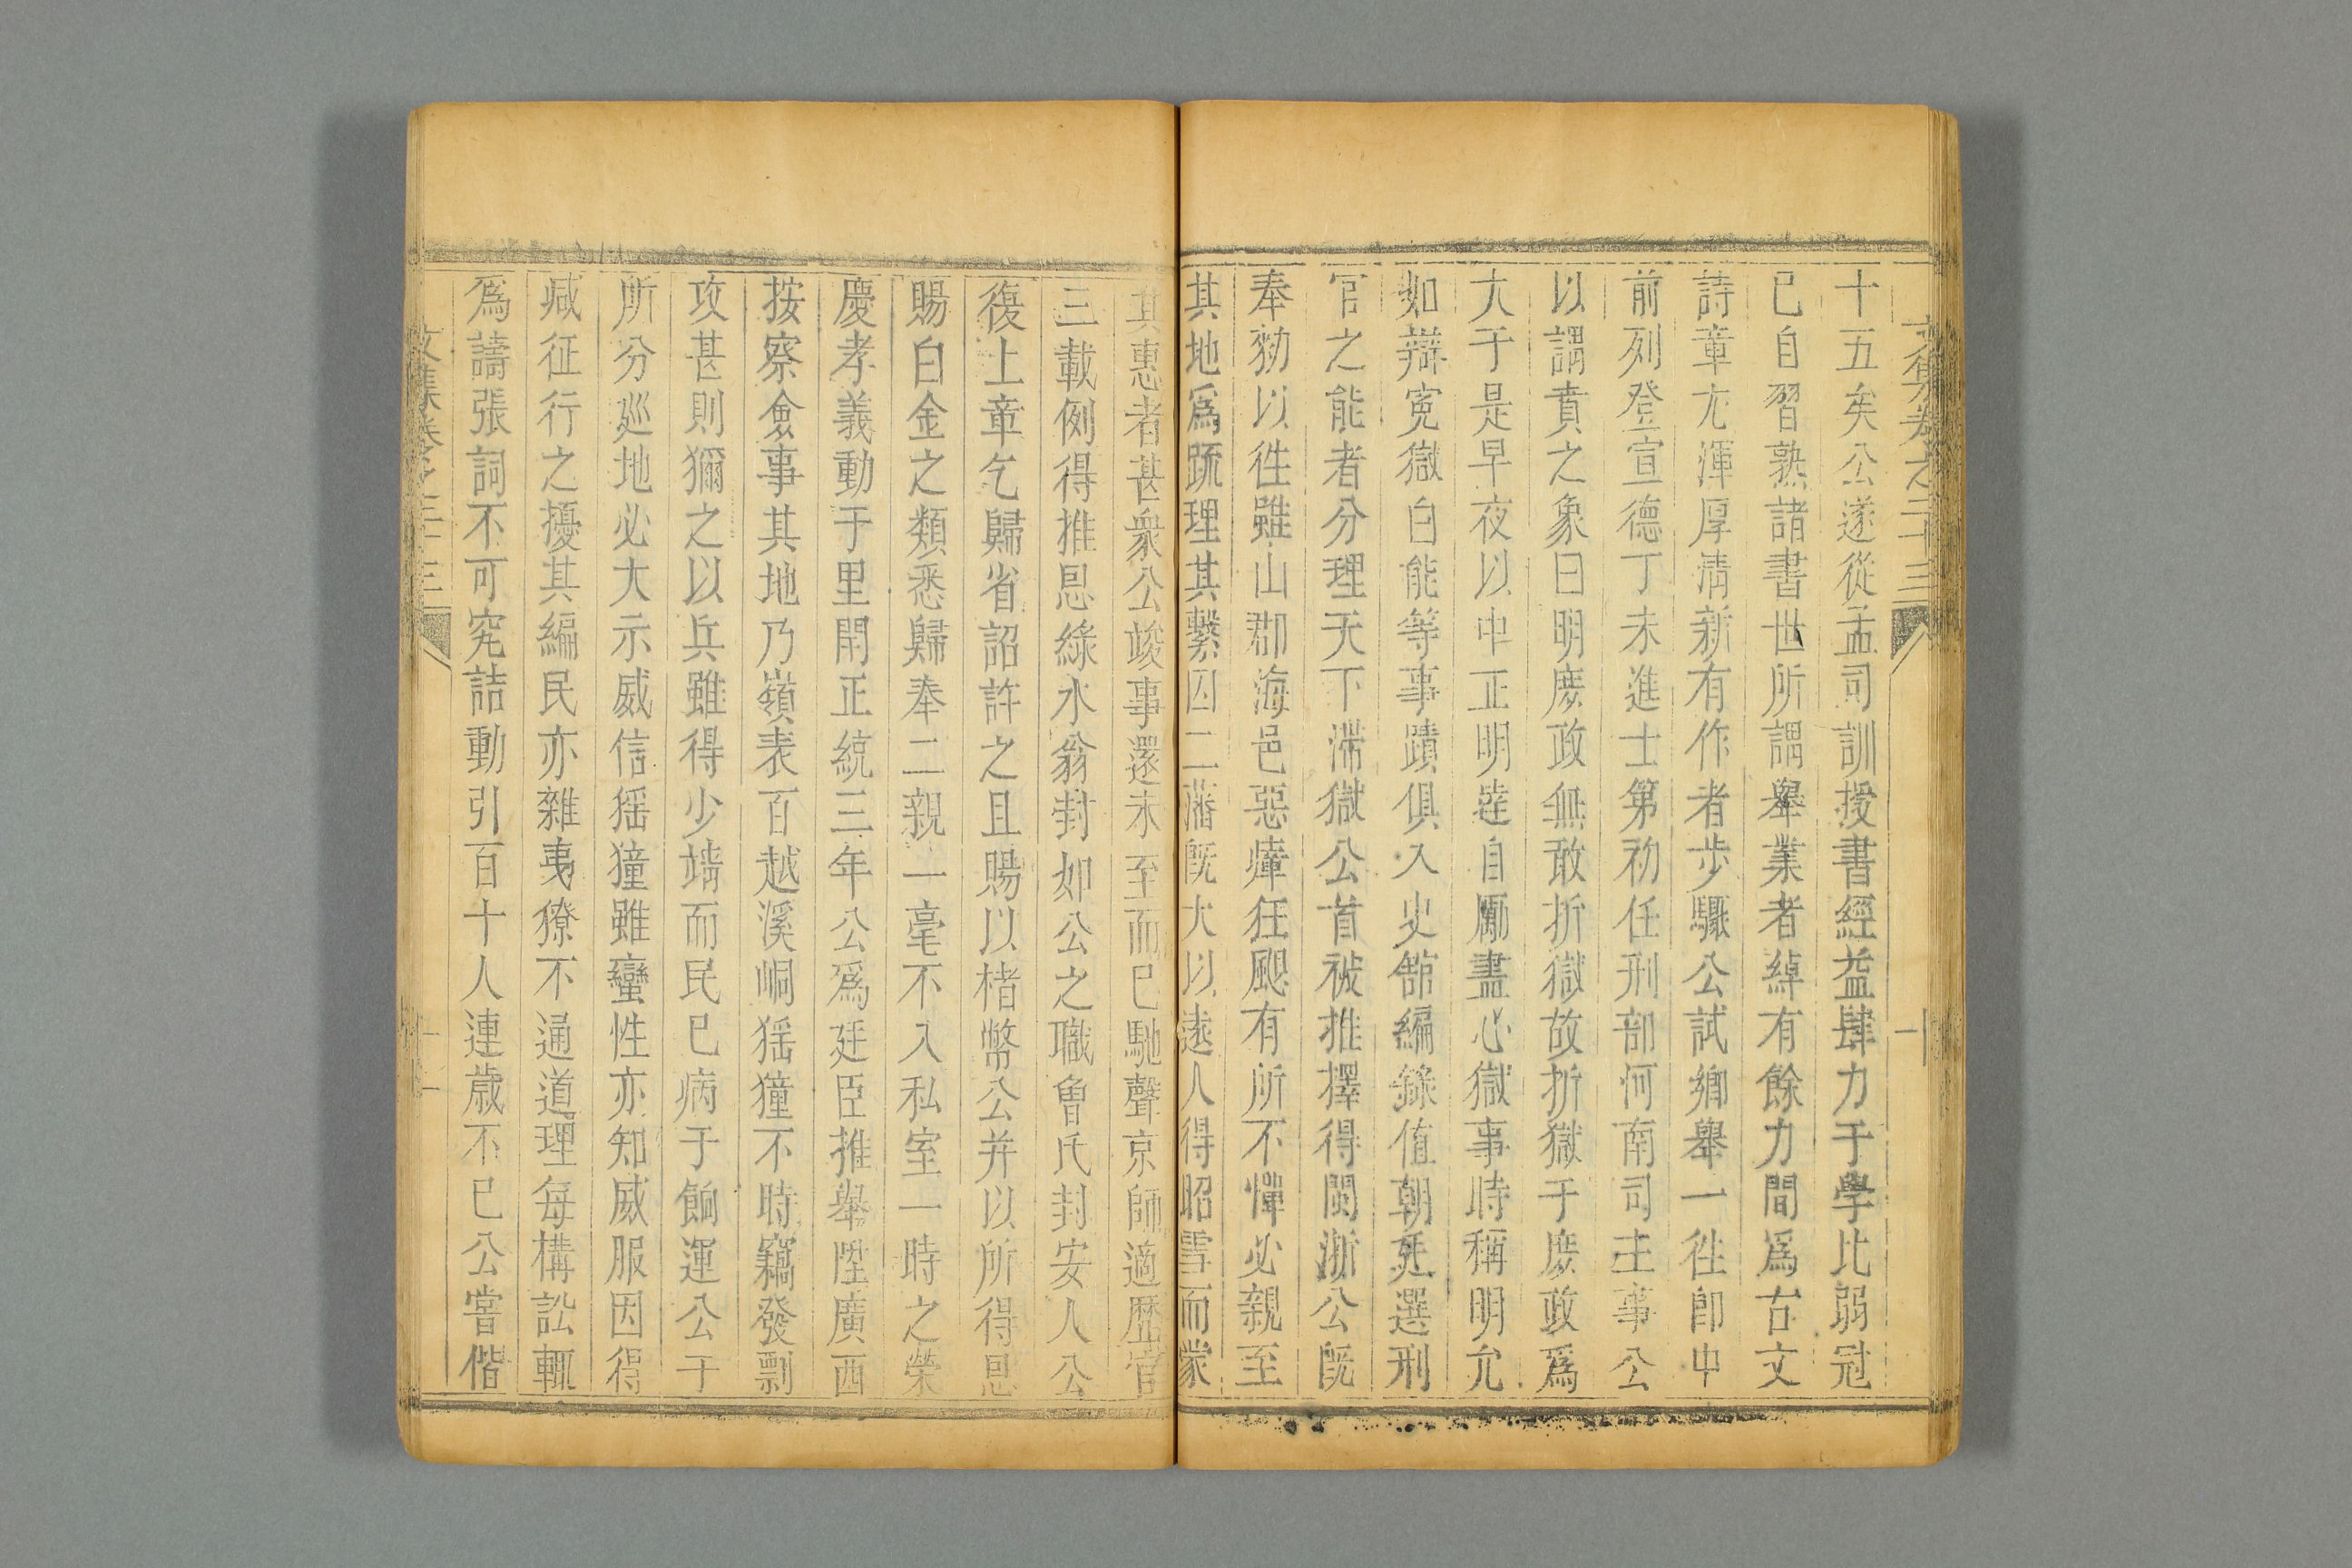 文集卷之二十三
十
十五矣公遂從孟司訓授書經益肆力于學比弱冠
已自習熟諸書世所謂舉業者綽有餘力間爲古文
詩章尤渾厚清新有作者步驟公試鄉舉一徃即中
前列登宣德丁未進士第初任刑部河南司主事公
以謂賁之象曰明庶政無敢折獄故折獄于庶政爲
大于是早夜以中正明達自勵盡心獄事時稱明允
如辯寃獄白能等事蹟俱入史館編錄值朝廷選刑
官之能者分理天下滯獄公首被推擇得閩浙公旣
奉勑以徃雖山郡海邑惡瘴狂颶有所不憚必親至
其地爲䟽理其繫囚二藩旣大以遠人得昭雪而蒙
其惠者甚衆公竣事還未至而已馳聲京師適歷官
三載例得推恩綠水翁封如公之職曾氏封安人公
復上章乞歸省詔許之且賜以楮幣公并以所得恩
賜白金之類悉歸奉二親一毫不入私室一時之榮
慶孝義動于里閈正統三年公爲廷臣推舉陞廣西
按察僉事其地乃嶺表百越溪峒猺獞不時竊發剽
攻甚則獮之以兵雖得少靖而民已病于餉運公于
所分廵地必大示威信猺獞雖蠻性亦知威服因得
減征行之擾其編民亦雜夷獠不通道理每構訟輒
爲譸張詞不可究詰動引百十人連歲不已公嘗偕
文集卷之二十三
十一